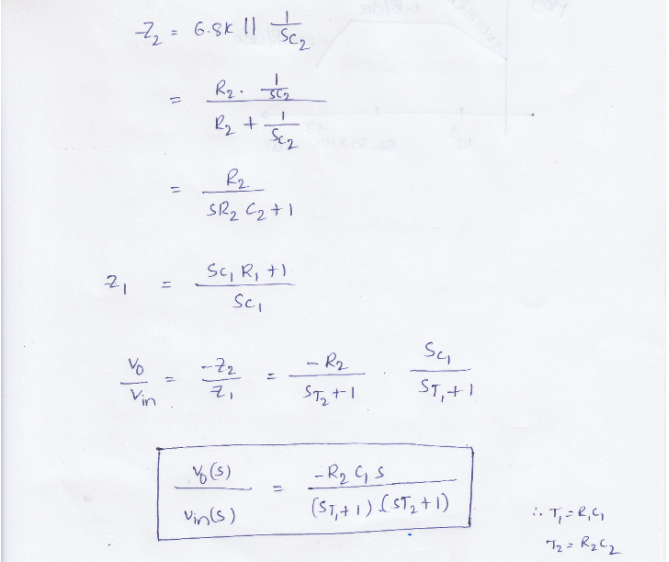 Z₂ = 6.8K || 1/SC₂
= (R₂ · 1/SC₂) / (R₂ + 1/SC₂)
= R₂ / (SR₂C₂+1)
Z₁ = (SC₁R₁+1) / SC₁
V₀/Vin = -Z₂/Z₁ = -R₂/(ST₂+1) · SC₁/(ST₁+1)
V₀(S)/Vin(S) = -R₂C₁S / (ST₁+1)(ST₂+1)
∴ T₁ = R₁C₁
T₂ = R₂C₂